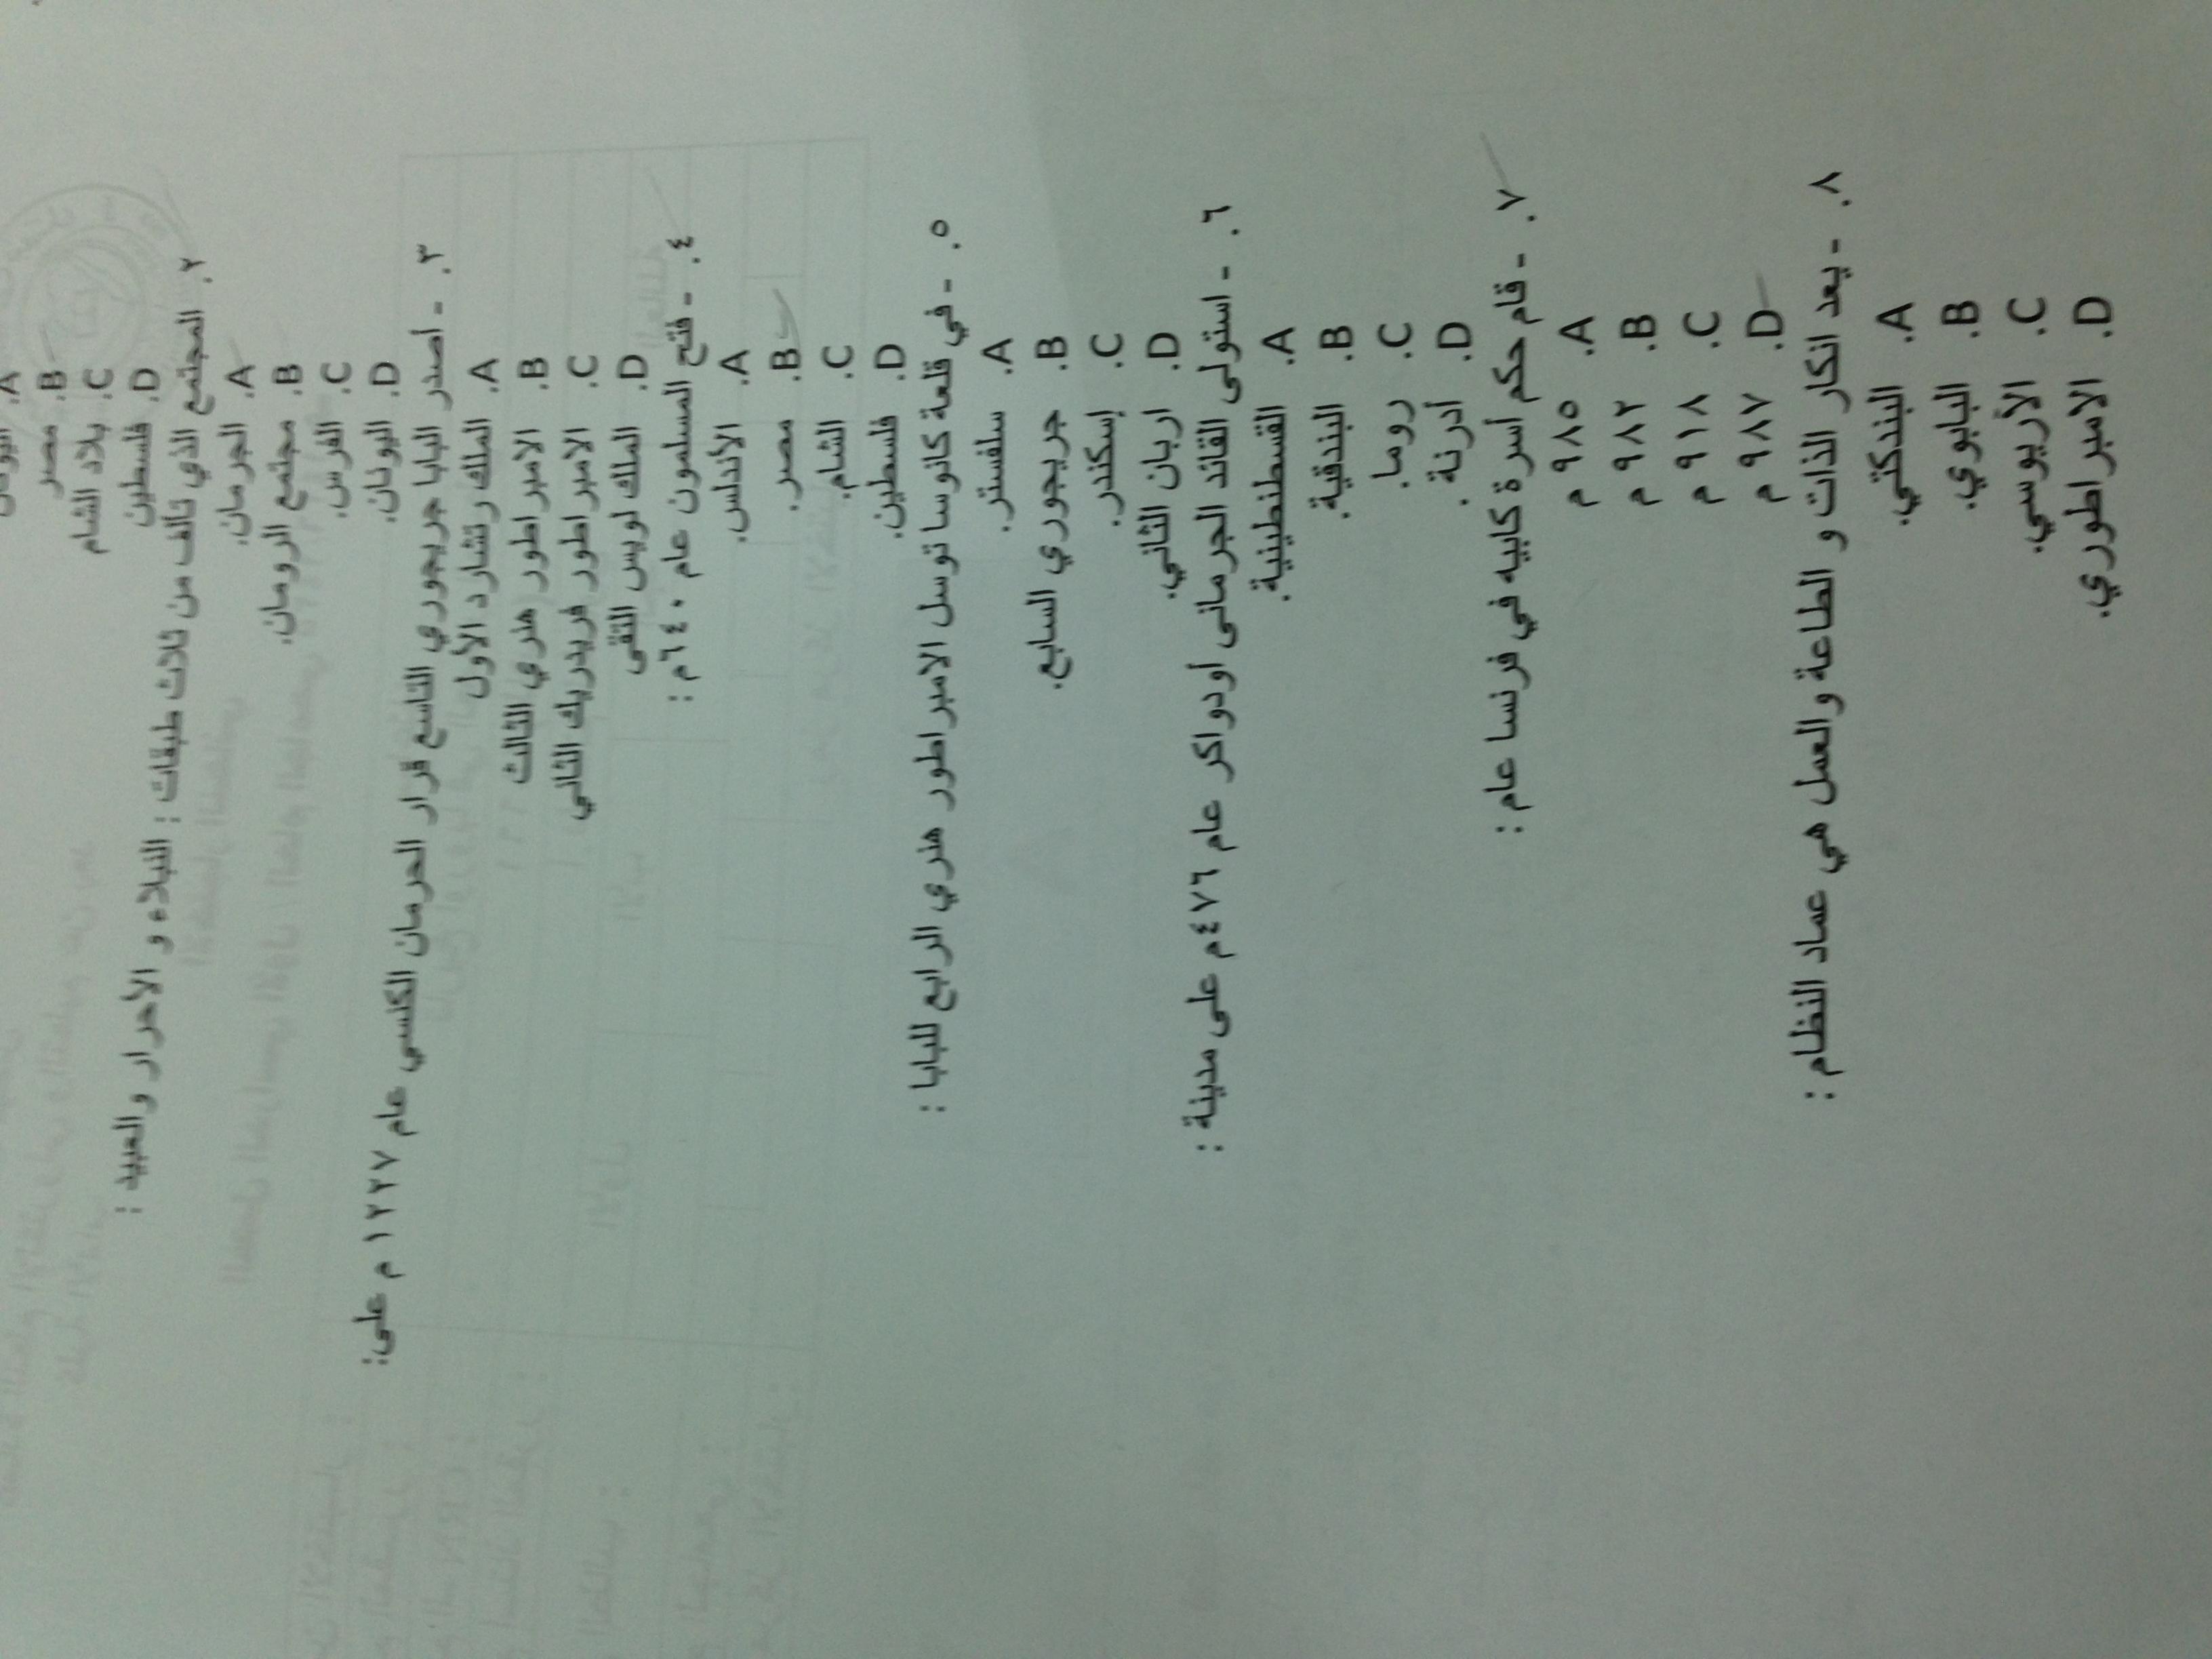 A. اليونان
B. مصر
C. بلاد الشام
D. فلسطين
٢. المجتمع الذي تألف من ثلاث طبقات : النبلاء و الأحرار والعبيد :
A. الجرمان.
B. مجتمع الرومان.
C. الفرس.
D. اليونان.
٣. - أصدر البابا جريجوري التاسع قرار الحرمان الكنسي عام ١٢٢٧ م على:
A. الملك رتشارد الأول
B. الامبراطور هنري الثالث
C. الامبراطور فريدريك الثاني
D. الملك لويس التقى
٤. - فتح المسلمون عام ٦٤٠م :
A. الأندلس.
B. مصر.
C. الشام.
D. فلسطين.
٥. - في قلعة كانوسا توسل الامبراطور هنري الرابع للبابا :
A. سلفستر.
B. جريجوري السابع.
C. إسكندر.
D. اربان الثاني.
٦. - استولى القائد الجرمانى أودواكر عام ٤٧٦م على مدينة :
A. القسطنطينية.
B. البندقية.
C. روما.
D. أدرنة .
٧. - قام حكم أسرة كابيه في فرنسا عام :
A. ٩٨٥ م
B. ٩٨٢ م
C. ٩١٨ م
D. ٩٨٧ م
٨. - يعد انكار الذات و الطاعة والعمل هي عماد النظام :
A. البندكتي.
B. البابوي.
C. الأريوسي.
D. الامبراطوري.